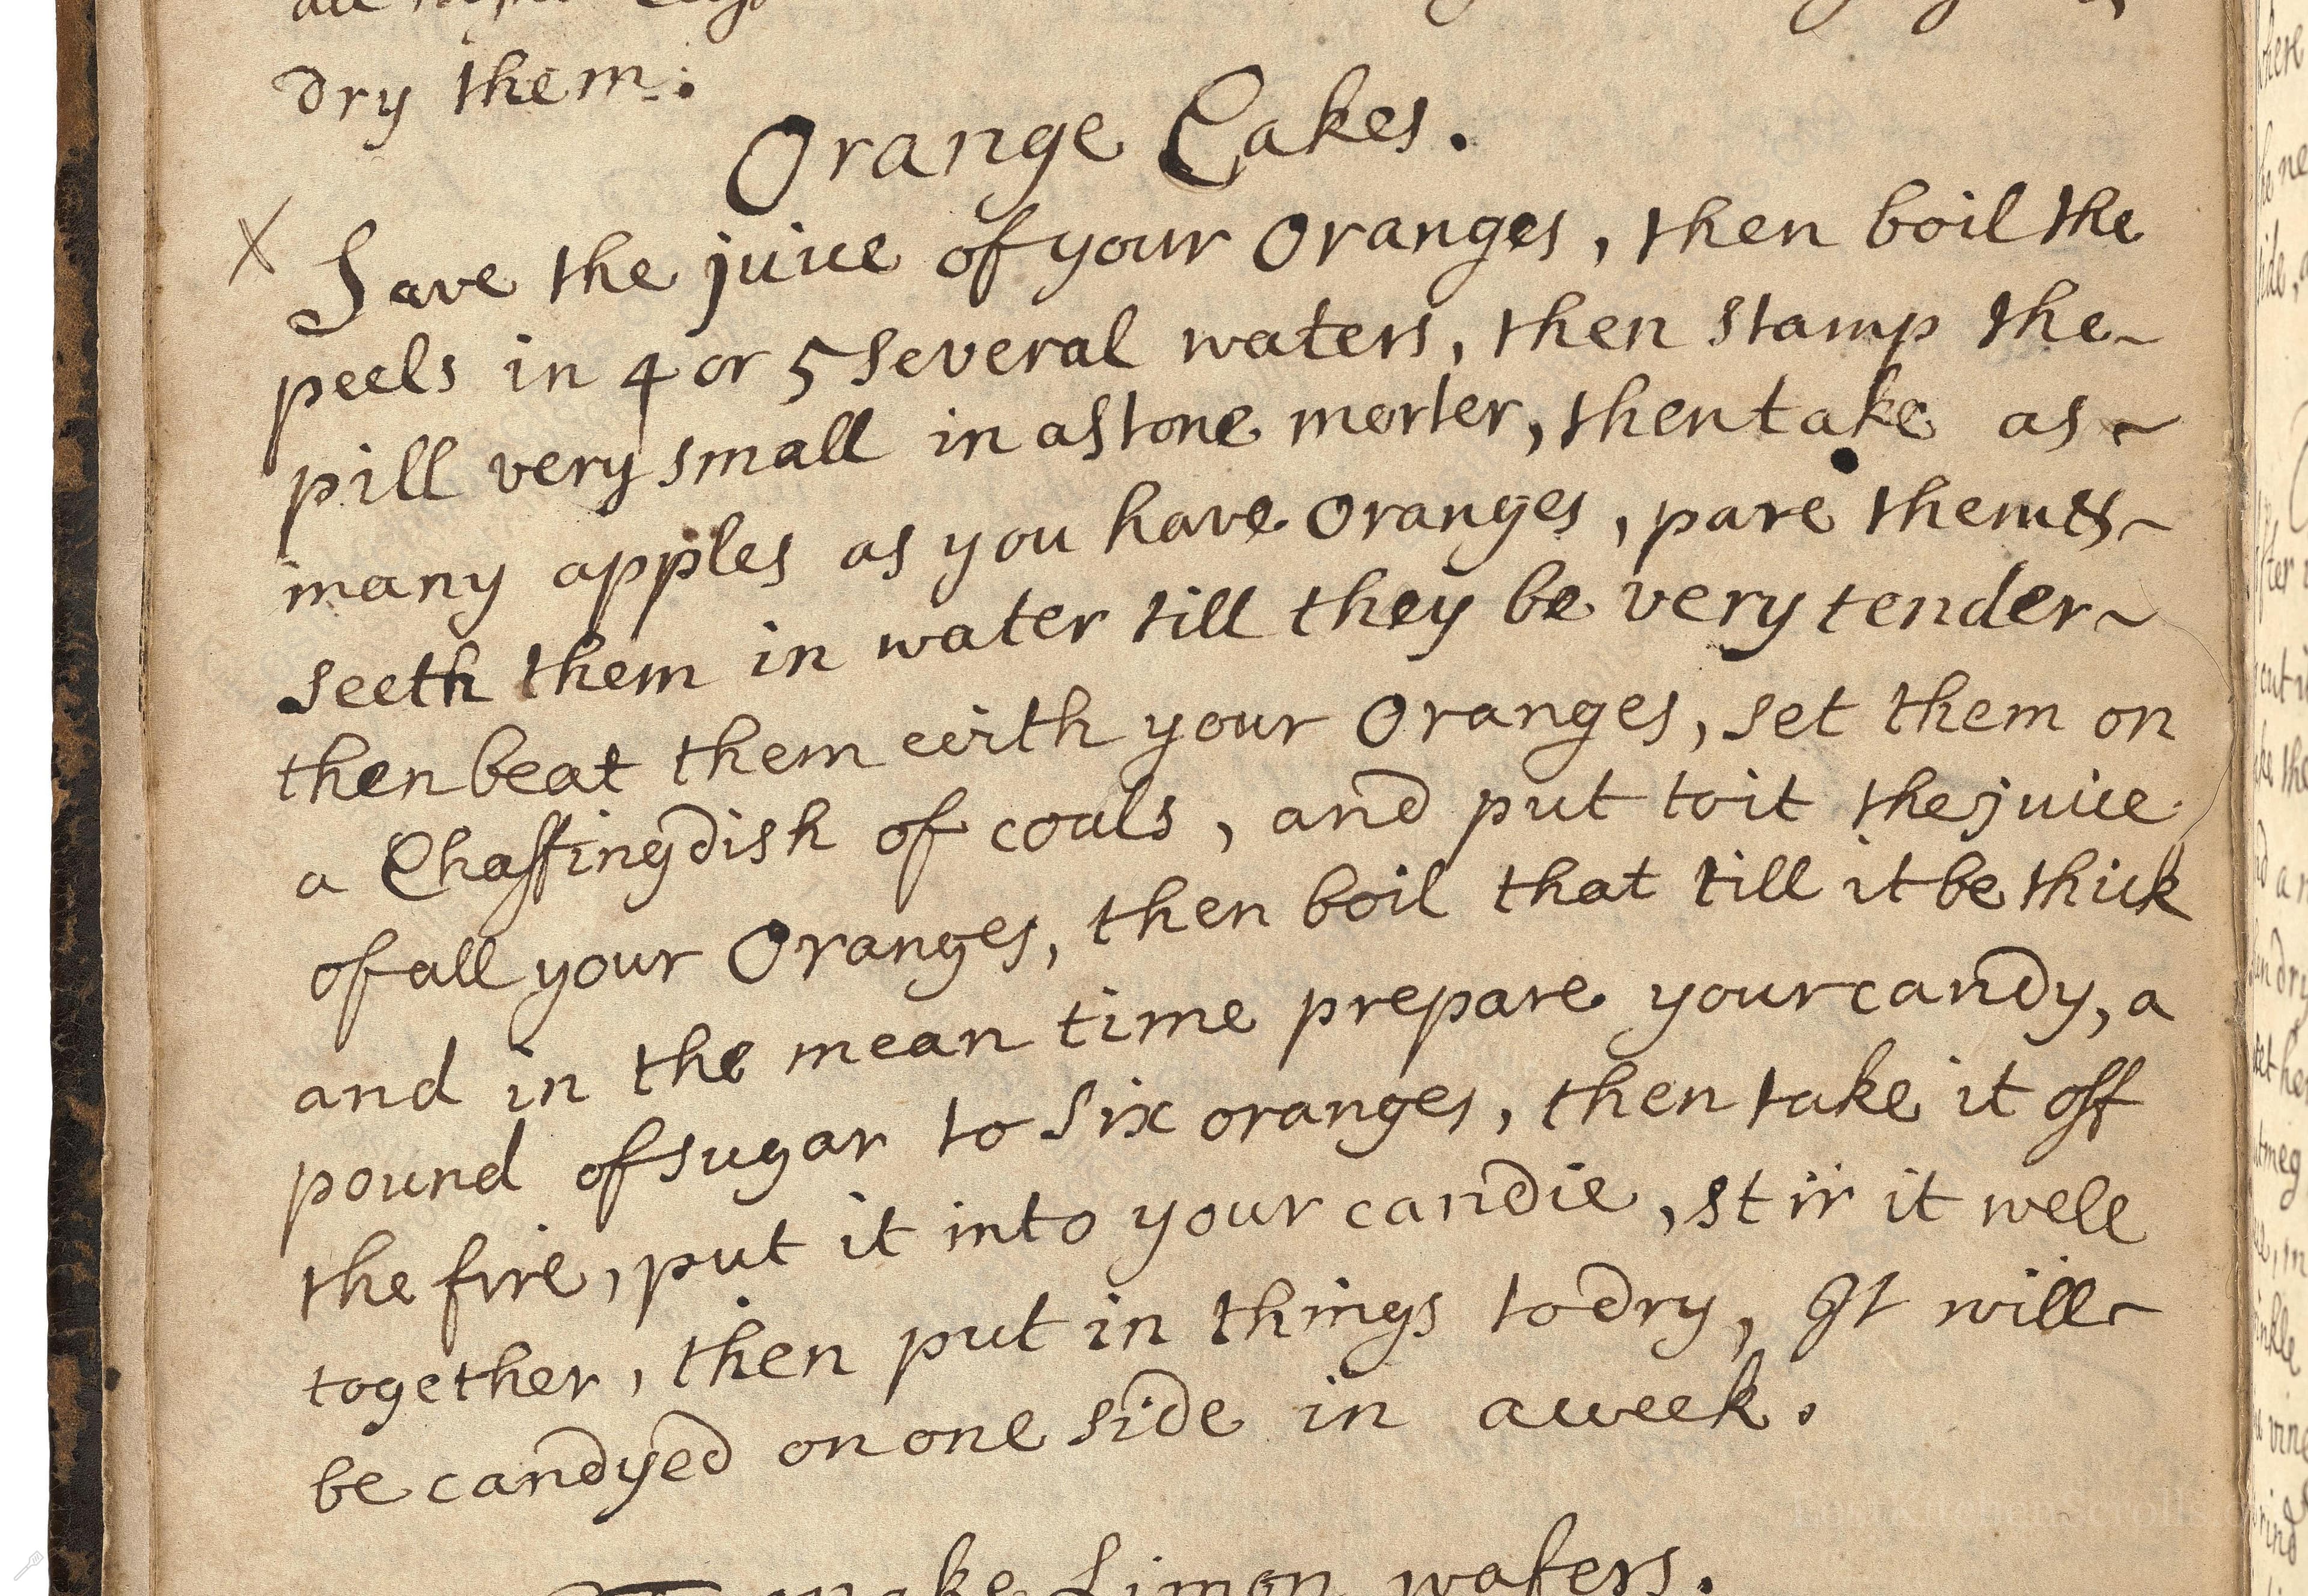 dry them.
Orange Cakes.
X Save the juice of your Oranges, then boil the
peels in 4 or 5 several waters, then stamp the~
pill very small in a stone morter, then take as~
many apples as you have Oranges, pare them &~
seeth them in water till they be very tender~
then beat them with your Oranges, set them on
a Chaffingdish of coals, and put to it the juice
of all your Oranges, then boil that till it be thick
and in the mean time prepare your candy, a
pound of sugar to six oranges, then take it off
the fire, put it into your candie, stir it well
together, then put in things to dry, It will~
be candyed on one side in a week.
make Limon wafers.